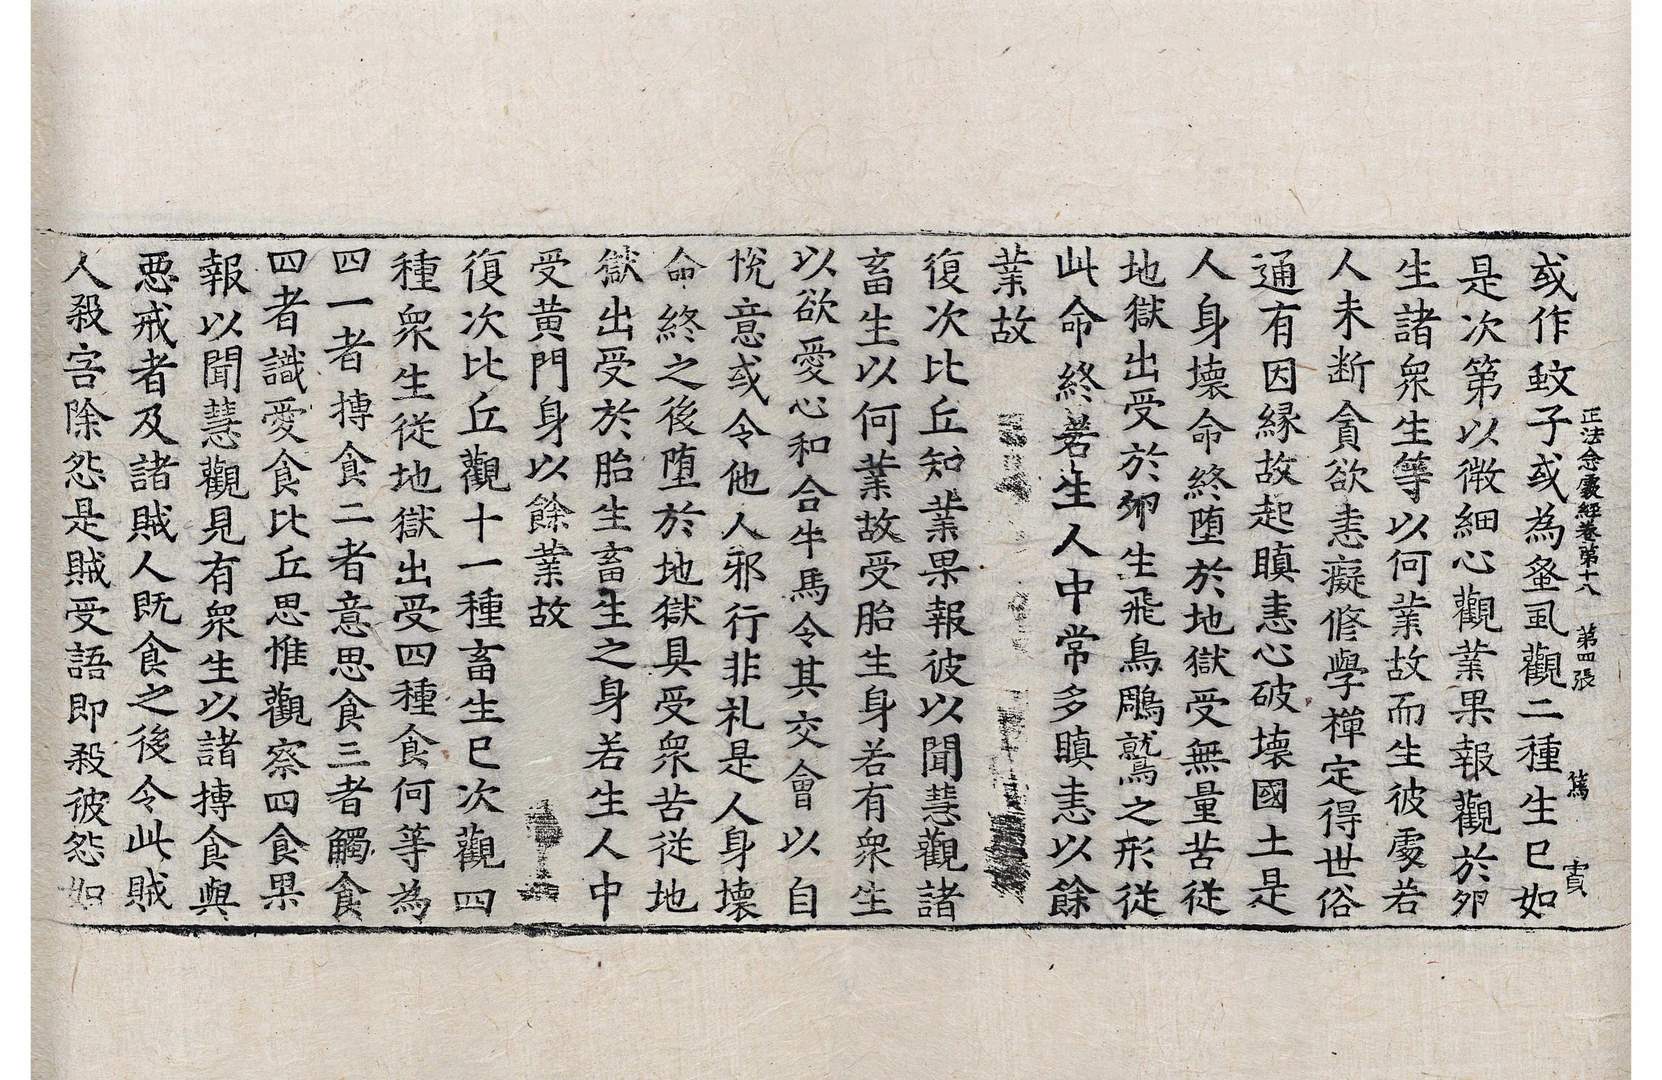 或作蚊子或為蚤虱觀二種生已如
正法念處經卷第十八 第四張 篤 賓
是次第以微細心觀業果報觀於卵
生諸衆生等以何業故而生彼處若
人未断貪欲恚癡修學禪定得世俗
通有因縁故起瞋恚心破壊國土是
人身壊命終堕於地獄受無量苦従
地獄出受於卵生飛鳥鵰鷲之形従
此命終若生人中常多瞋恚以餘
業故
復次比丘知業果報彼以聞慧觀諸
畜生以何業故受胎生身若有衆生
以欲愛心和合牛馬令其交會以自
悅意或令他人邪行非礼是人身壊
命終之後堕於地獄具受衆苦従地
獄出受於胎生畜生之身若生人中
受黄門身以餘業故
復次比丘觀十一種畜生已次觀四
種衆生従地獄出受四種食何等為
四一者摶食二者意思食三者觸食
四者識愛食比丘思惟觀察四食果
報以聞慧觀見有衆生以諸摶食與
惡戒者及諸賊人既食之後令此賊
人殺害除怨是賊受語即殺彼怨如